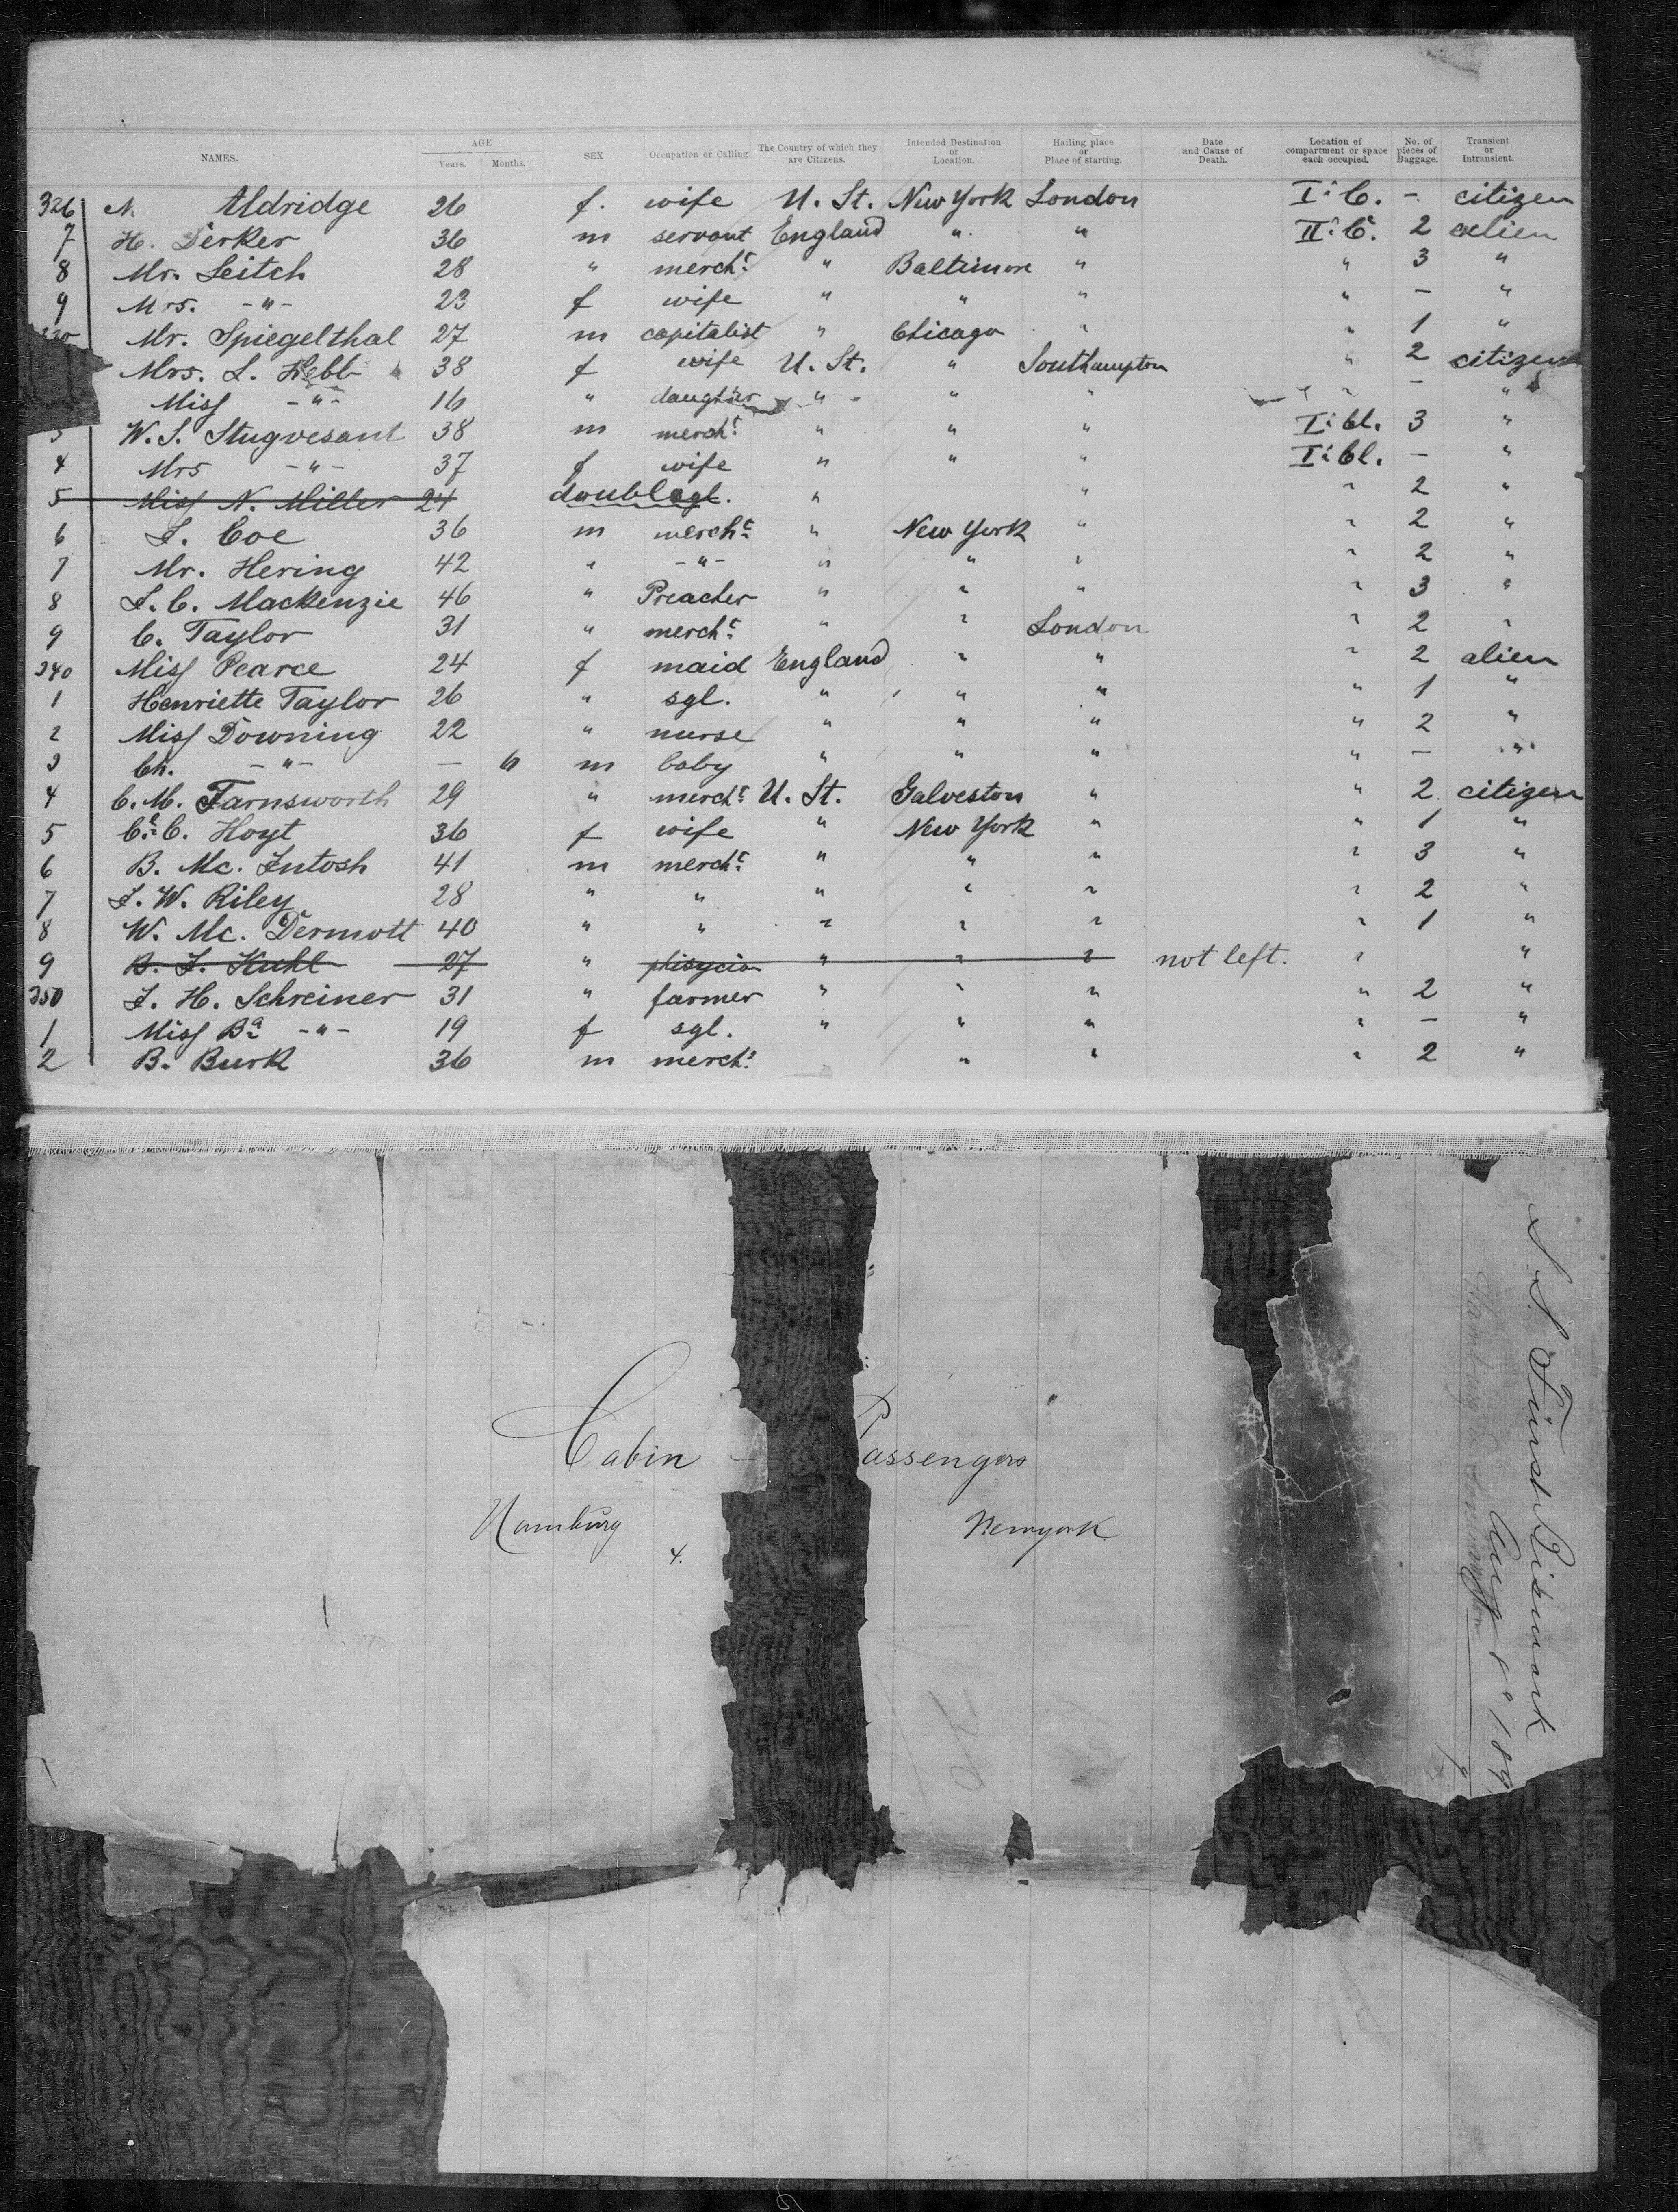 NAMES. AGE Years. Months. SEX Occupation or Calling. The Country of which they are Citizens. Intended Destination or Location. Hailing place or Place of starting. Date and Cause of Death. Location of compartment or space each occupied. No. of pieces of Baggage. Transient or Intransient.
326 Aldridge 26 f. wife U. St. New York London I: C. - citizen
7 H. Derker 36 m servant England " " II: C. 2 alien
8 Mr. Leitch 28 " mercht " Baltimore " " 3 "
9 Mrs. -"- 23 f wife " " " " - "
330 Mr. Spiegelthal 27 m capitalist " Chicago " " 1 "
Mrs. L. Hebb 38 f wife U. St. " Southampton " 2 citizen
Miss -"- 16 " daughter " " " " - "
3 W. S. Stugvesant 38 m mercht " " " I: Cl. 3 "
4 Mrs -"- 37 f wife " " " I: Cl. - "
5 Miss N. Miller 24 double sgl. " " " 2 "
6 J. Coe 36 m mercht " New York " " 2 "
7 Mr. Hering 42 " -"- " " " " 2 "
8 J. C. Mackenzie 46 " Preacher " " " " 3 "
9 C. Taylor 31 " mercht " " London " 2 "
340 Miss Pearce 24 f maid England " " " 2 alien
1 Henriette Taylor 26 " sgl. " " " " 1 "
2 Miss Downing 22 " nurse " " " " 2 "
3 Ch. -"- - 6 m baby " " " " - "
4 C. M. Farnsworth 29 " mercht U. St. Galveston " " 2 citizen
5 C. Hoyt 36 f wife " New York " " 1 "
6 B. Mc. Intosh 41 m mercht " " " " 3 "
7 J. W. Riley 28 " " " " " " 2 "
8 W. Mc. Dermott 40 " " " " " " 1 "
9 B. J. Kuhl 27 " phisycian " " " not left. " "
350 J. H. Schreiner 31 " farmer " " " " 2 "
1 Miss Ba -"- 19 f sgl. " " " " - "
2 B. Burk 36 m mercht " " " 2 "
Cabin - Passengers
Hamburg Newyork
4.
S. S. Fürst Bismarck
Hamburg & Southampton
Aug 8" 189